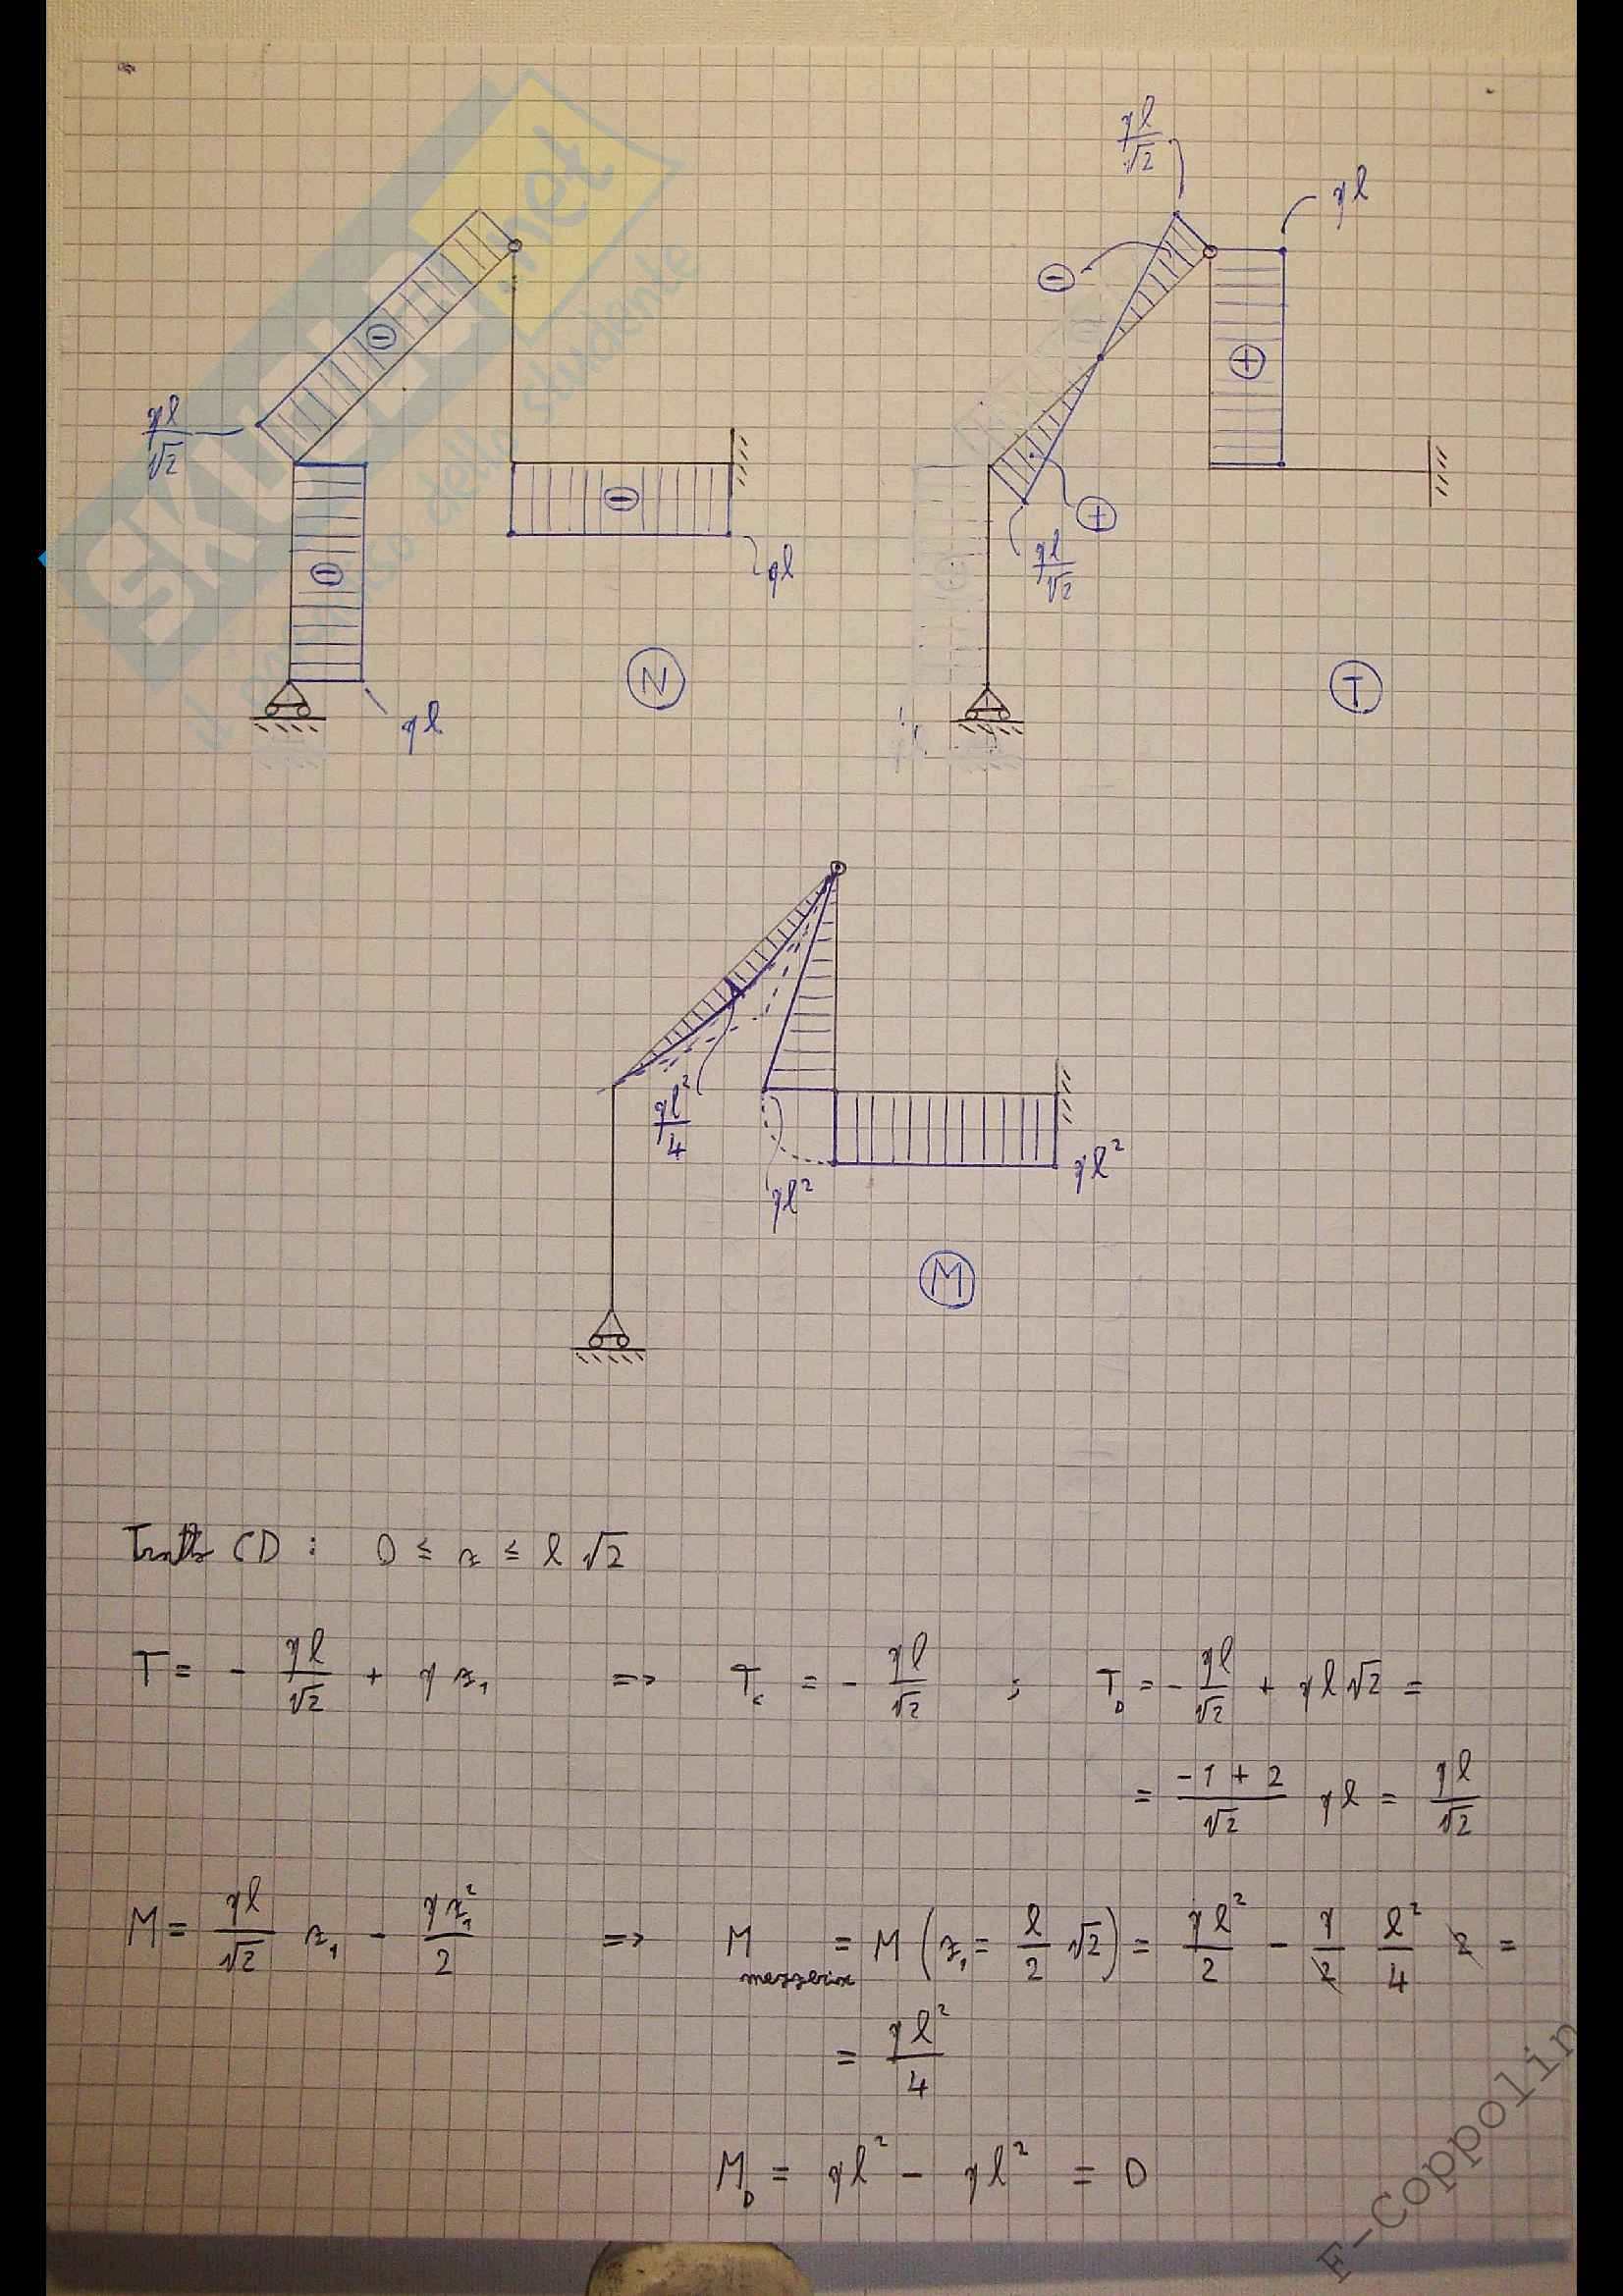 SKUOLA.net
dello studente
ql/√2
⊖
⊖
⊖
ql
ql
N
ql/√2
ql
⊖
⊕
⊕
ql/√2
T
ql²/4
ql²
ql²
M
Tratto CD : 0 ≤ z ≤ l √2
T = - ql/√2 + q z₁ => T_C = - ql/√2 ; T_D = - ql/√2 + q l √2 =
= (-1 + 2)/√2 ql = ql/√2
M = ql/√2 z₁ - q z₁²/2 => M mezzeria = M (z₁ = l/2 √2) = ql²/2 - q/2 l²/4 2 =
= ql²/4
M_D = ql² - ql² = 0
E-Coppolin